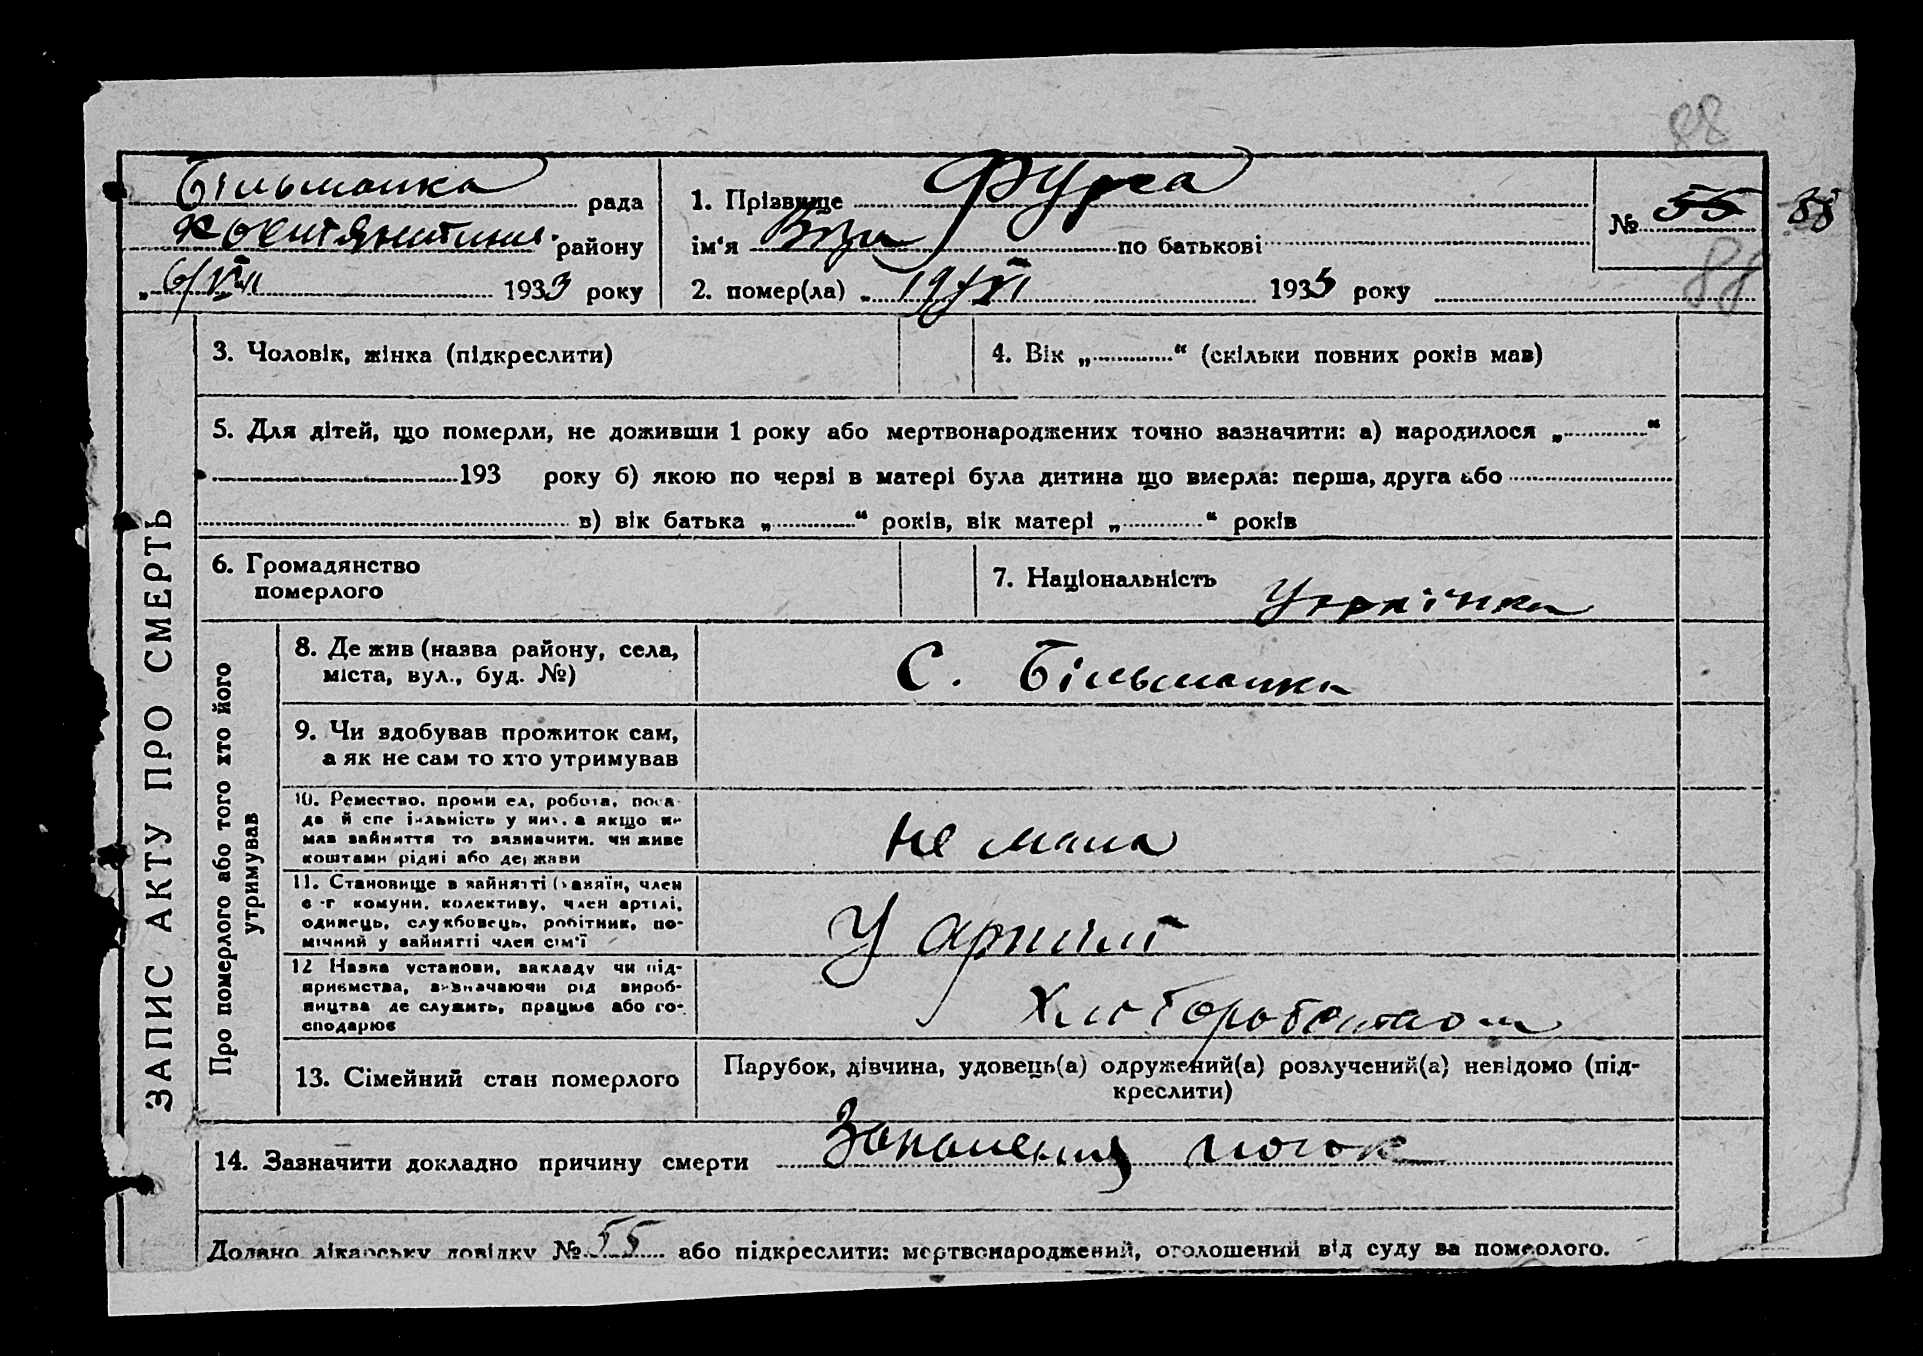 88
Більманка рада
району
„6/VIII 1933 року
1. Прізвище Фурса
ім‘я по батькові
2. помер(ла) „19/VI 1933 року
№ 55 88
88
3. Чоловік, жінка (підкреслити)
4. Вік „ “ (скільки повних років мав)
5. Для дітей, що померли, не доживши 1 року або мертвонароджених точно зазначити: а) народилося „ “
193 року б) якою по черзі в матері була дитина що вмерла: перша, друга або
в) вік батька „ “ років, вік матері „ “ років
6. Громадянство
померлого
7. Національність Українка
ЗАПИС АКТУ ПРО СМЕРТЬ
Про померлого або того хто його
утримував
8. Де жив (назва району, села,
міста, вул., буд. №)
С. Більманка
9. Чи здобував прожиток сам,
а як не сам то хто утримував
10. Ремество, промисел, робота, поса-
да й спеціальність у них, а якщо не
мав зайняття то зазначити, чи живе
коштами рідні або держави
не мала
11. Становище в зайнятті (хазяїн, член
с-г комуни, колективу, член артілі,
одинець, службовець, робітник, по-
мічний у зайнятті член сім‘ї
У артилі
12 Назва установи, закладу чи під-
приємства, визначаючи рід вироб-
ництва де служить, працює або го-
сподарює
13. Сімейний стан померлого
Парубок, дівчина, удовець(а) одружений(а) розлучений(а) невідомо (під-
креслити)
14. Зазначити докладно причину смерти Запалення
Додано лікарську довідку № 55 або підкреслити: мертвонароджений, оголошений від суду за померлого.